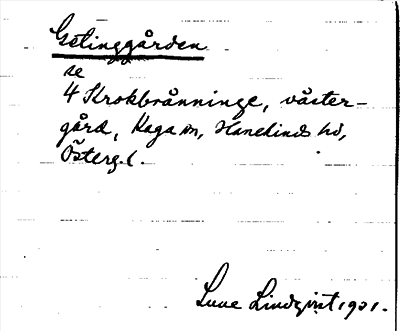 Getinggården
se
4 Krokbrånninge, väster-
gård, Kaga sn, Hanekinds hd,
Österg. l.
Sune Lindqvist 1921.